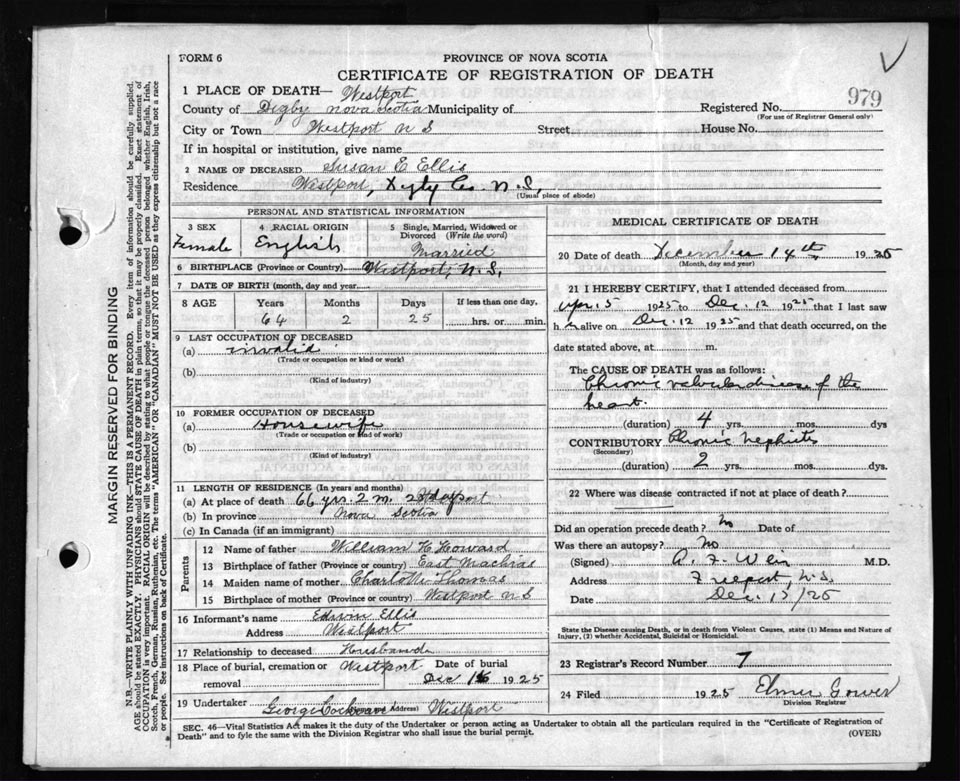 FORM 6
PROVINCE OF NOVA SCOTIA
CERTIFICATE OF REGISTRATION OF DEATH
979
1 PLACE OF DEATH— Westport
County of Digby Nova Scotia Municipality of
Registered No.
(For use of Registrar General only)
City or Town Westport N S Street House No.
If in hospital or institution, give name
2 NAME OF DECEASED Susan E Ellis
Residence Westport, Digby Co. N.S.
(Usual place of abode)
PERSONAL AND STATISTICAL INFORMATION
3 SEX Female
4 RACIAL ORIGIN English
5 Single, Married, Widowed or Divorced (Write the word) Married
6 BIRTHPLACE (Province or Country) Westport, N.S.
7 DATE OF BIRTH (month, day and year)
8 AGE Years Months Days If less than one day,
64 2 25 hrs. or min.
9 LAST OCCUPATION OF DECEASED
(a) invalid
(Trade or occupation or kind of work)
(b)
(Kind of industry)
10 FORMER OCCUPATION OF DECEASED
(a) Housewife
(Trade or occupation or kind of work)
(b)
(Kind of industry)
11 LENGTH OF RESIDENCE (In years and months)
(a) At place of death 66 yrs. 2 m.
(b) In province Nova Scotia
(c) In Canada (if an immigrant)
Parents
12 Name of father William H Howard
13 Birthplace of father (Province or country) East Machias
14 Maiden name of mother Charlotte Thomas
15 Birthplace of mother (Province or country) Westport N S
16 Informant's name Edwin Ellis
Address Westport
17 Relationship to deceased Husband
18 Place of burial, cremation or removal Westport Date of burial Dec 16 1925
19 Undertaker George (Address) Westport
MEDICAL CERTIFICATE OF DEATH
20 Date of death December 14th 1925
(Month, day and year)
21 I HEREBY CERTIFY, that I attended deceased from
Apr. 15 1925 to Dec. 12 1925 that I last saw
her alive on Dec. 12 1925 and that death occurred, on the
date stated above, at m.
The CAUSE OF DEATH was as follows:
Chronic valvular disease of the
heart.
(duration) 4 yrs. mos. dys
CONTRIBUTORY Chronic Nephritis
(Secondary)
(duration) 2 yrs. mos. dys.
22 Where was disease contracted if not at place of death?
Did an operation precede death? No Date of
Was there an autopsy? No
(Signed) A. F. Weir M.D.
Address Freeport, N.S.
Date Dec. /25
State the Disease causing Death, or in death from Violent Causes, state (1) Means and Nature of
Injury, (2) whether Accidental, Suicidal or Homicidal.
23 Registrar's Record Number 7
24 Filed 1925 Elmer Gower
Division Registrar
SEC. 46—Vital Statistics Act makes it the duty of the Undertaker or person acting as Undertaker to obtain all the particulars required in the "Certificate of Registration of
Death" and to fyle the same with the Division Registrar who shall issue the burial permit. (OVER)
MARGIN RESERVED FOR BINDING
N.B.—WRITE PLAINLY WITH UNFADING INK—THIS IS A PERMANENT RECORD. Every item of information should be carefully supplied.
AGE should be stated EXACTLY. PHYSICIANS should STATE CAUSE OF DEATH in plain terms, so that it may be properly classified. Exact statement of
OCCUPATION is very important. RACIAL ORIGIN will be described by stating to what people or tongue the deceased person belonged, whether English, Irish,
Scotch, French, German, Russian, Ruthenian, etc. The terms "AMERICAN" or "CANADIAN" MUST NOT BE USED as they express citizenship but not a race
or people. See instructions on back of Certificate.